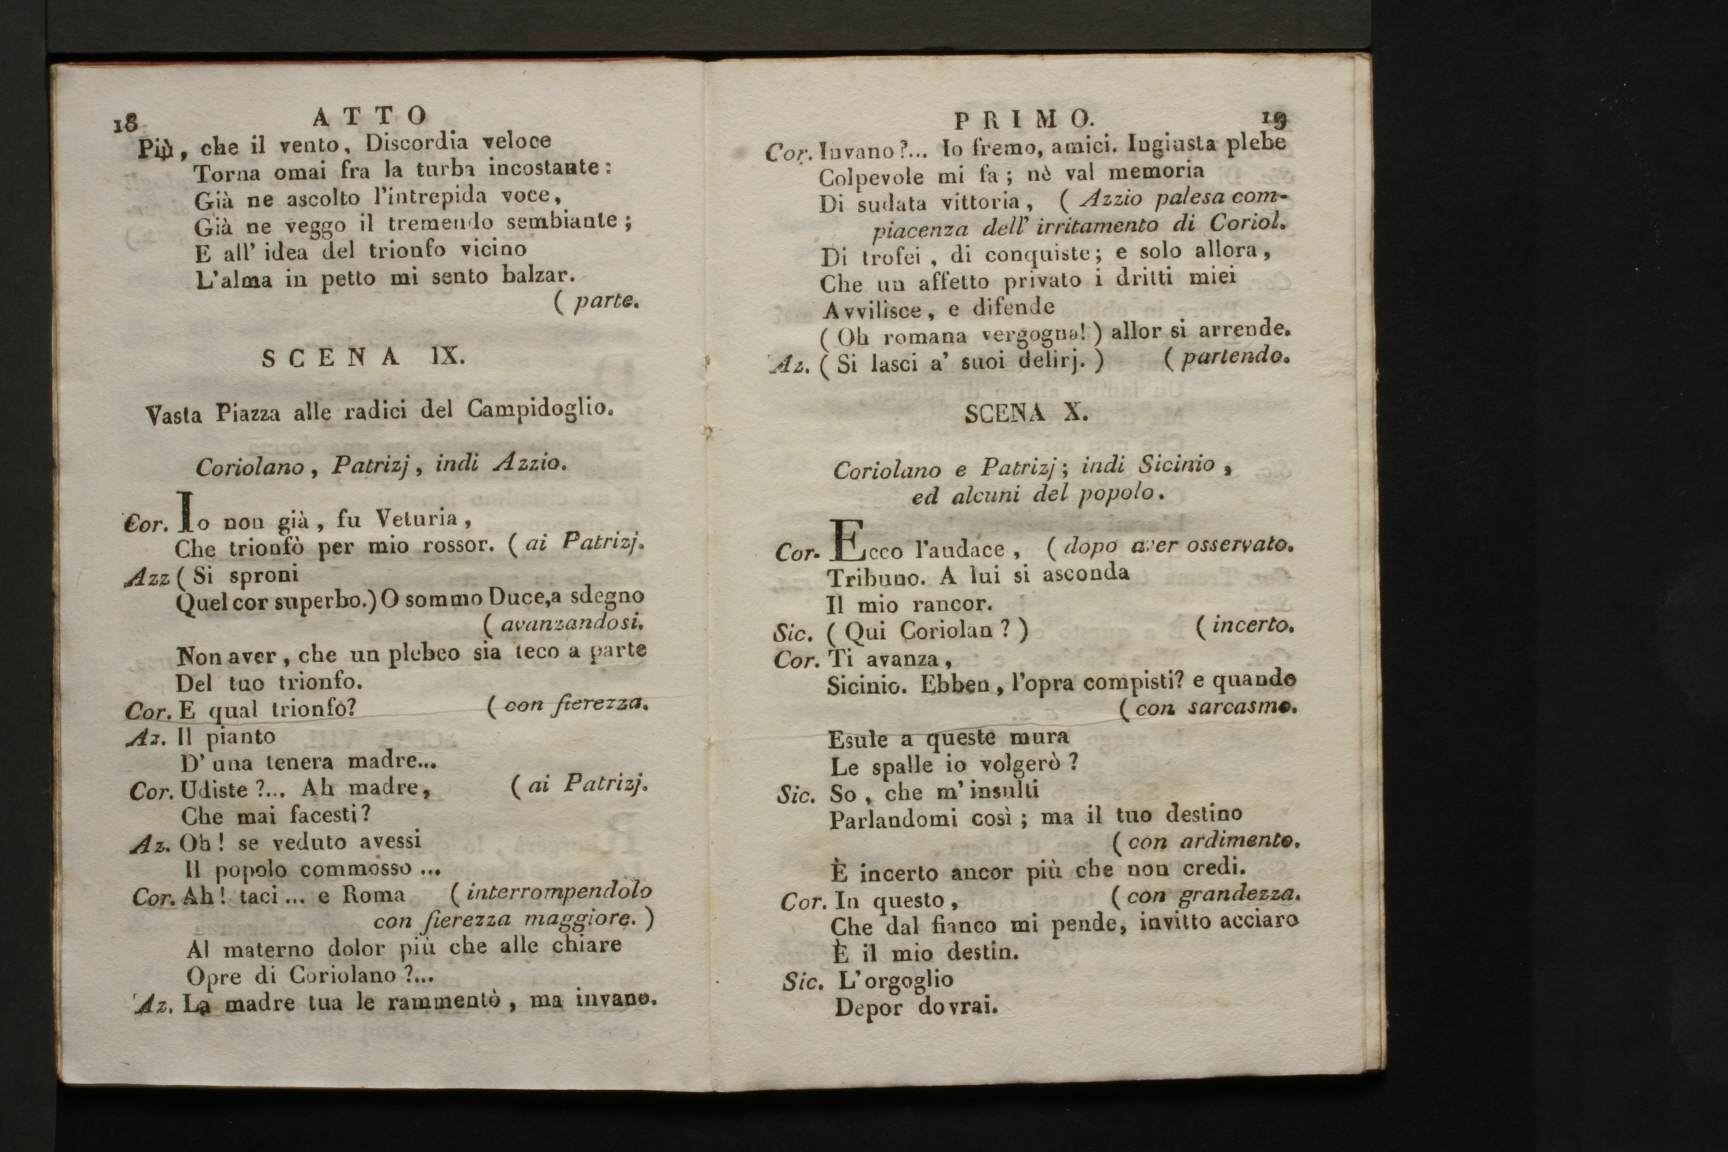 18 ATTO
Più, che il vento, Discordia veloce
Torna omai fra la turba incostante:
Già ne ascolto l'intrepida voce,
Già ne veggo il tremendo sembiante;
E all' idea del trionfo vicino
L'alma in petto mi sento balzar.
( parte.
SCENA IX.
Vasta Piazza alle radici del Campidoglio.
Coriolano, Patrizj, indi Azzio.
Cor. Io non già, fu Veturia,
Che trionfò per mio rossor. ( ai Patrizj.
Azz ( Si sproni
Quel cor superbo.) O sommo Duce,a sdegno
( avanzandosi.
Non aver, che un plebeo sia teco a parte
Del tuo trionfo.
Cor. E qual trionfo? ( con fierezza.
Az. Il pianto
D' una tenera madre...
Cor. Udiste ?... Ah madre, ( ai Patrizj.
Che mai facesti?
Az. Oh! se veduto avessi
Il popolo commosso ...
Cor. Ah! taci ... e Roma ( interrompendolo
con fierezza maggiore. )
Al materno dolor più che alle chiare
Opre di Coriolano ?...
Az. La madre tua le rammentò, ma invano.
PRIMO. 19
Cor. Invano ?... Io fremo, amici. Ingiusta plebe
Colpevole mi fa; nè val memoria
Di sudata vittoria, ( Azzio palesa com-
piacenza dell' irritamento di Coriol.
Di trofei, di conquiste; e solo allora,
Che un affetto privato i dritti miei
Avvilisce, e difende
( Oh romana vergogna! ) allor si arrende.
Az. ( Si lasci a' suoi delirj. ) ( partendo.
SCENA X.
Coriolano e Patrizj; indi Sicinio,
ed alcuni del popolo.
Cor. Ecco l'audace, ( dopo aver osservato.
Tribuno. A lui si asconda
Il mio rancor.
Sic. ( Qui Coriolan ? ) ( incerto.
Cor. Ti avanza,
Sicinio. Ebben, l'opra compisti? e quando
( con sarcasmo.
Esule a queste mura
Le spalle io volgerò ?
Sic. So, che m' insulti
Parlandomi così; ma il tuo destino
( con ardimento.
È incerto ancor più che non credi.
Cor. In questo, ( con grandezza.
Che dal fianco mi pende, invitto acciaro
È il mio destin.
Sic. L'orgoglio
Depor dovrai.